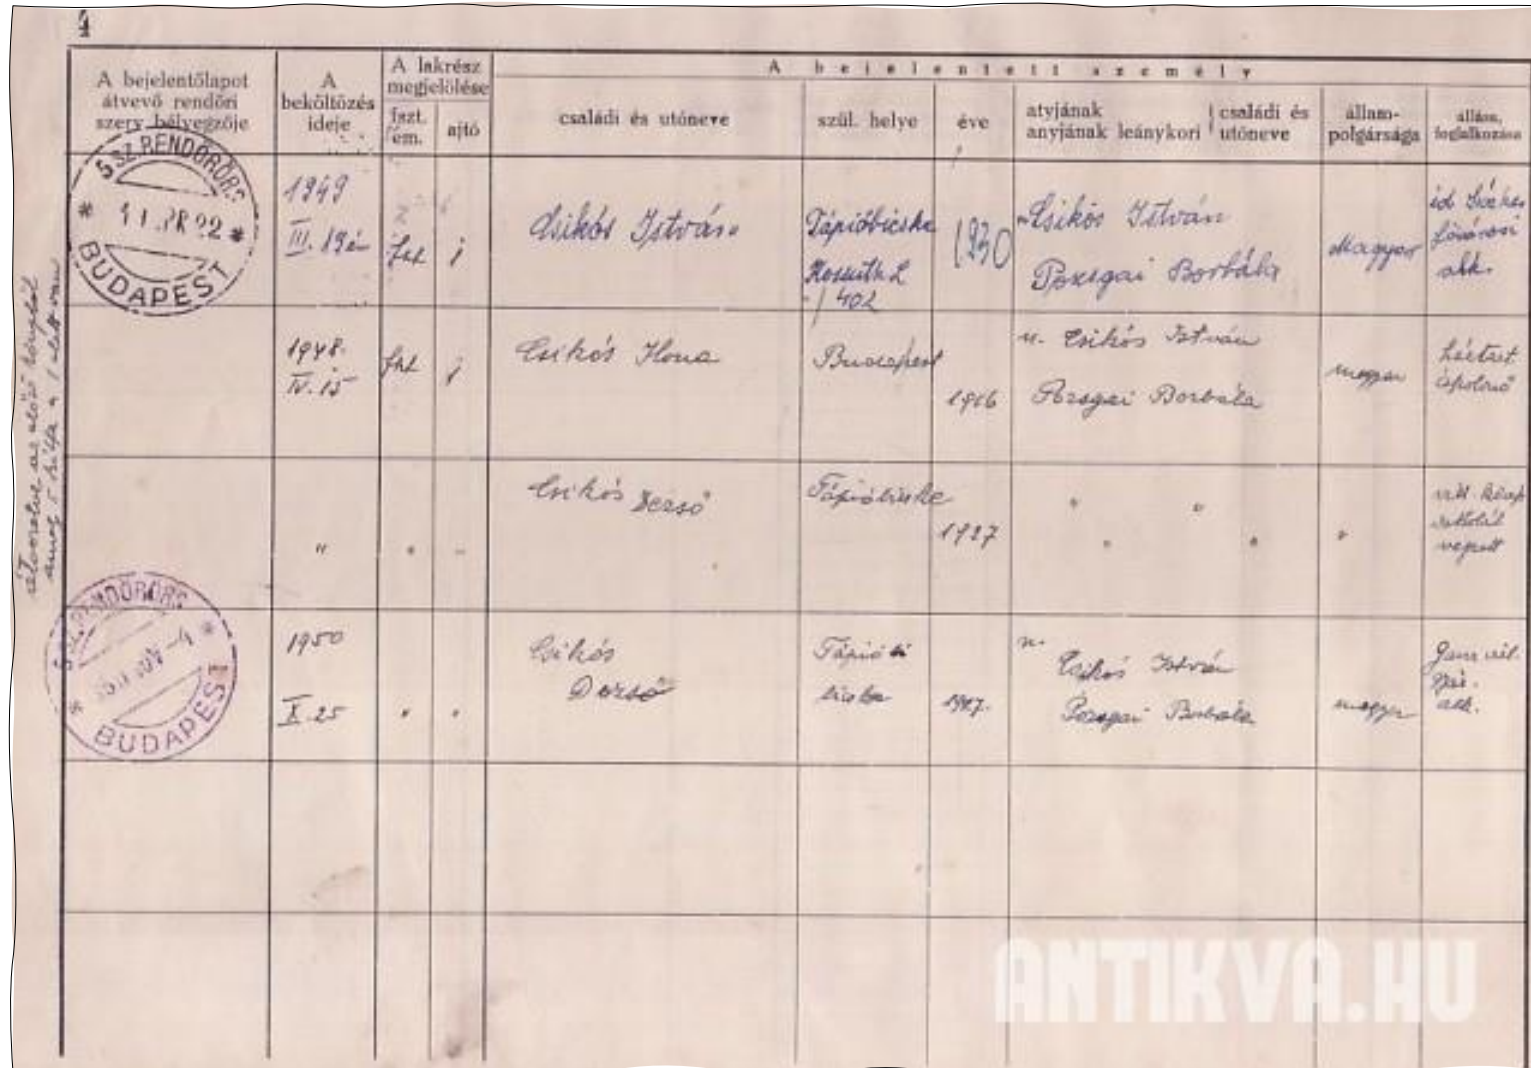 4
A bejelentőlapot
átvevő rendőri
szerv bélyegzője
A
beköltözés
ideje
A lakrész
megjelölése
fszt.
ém.
ajtó
A bejelentett személy
családi és utóneve
szül. helye
éve
atyjának
anyjának leánykori
családi és
utóneve
állam-
polgársága
állása,
foglalkozása
5 SZ. RENDŐRŐRS
BUDAPEST
1949
III. 19én
fszt
j
Csikós István
Tápióbicske
Kossuth L
402
1930
Csikós István
Pozsgai Borbála
Magyar
fővárosi
alk.
1948.
IV. 15
fszt
j
Csikós Ilona
Budapest
1916
n. Csikós István
Pozsgai Borbála
magyar
háztart
ápolónő
Csikós Dezső
Tápióbicske
1927
"
végzett
RENDŐRŐRS
BUDAPEST
1950
X. 25
Csikós
Dezső
Tápió bi
bicske
1927.
n.
Csikós István
Pozsgai Borbála
magyar
alk.
ANTIKVA.HU